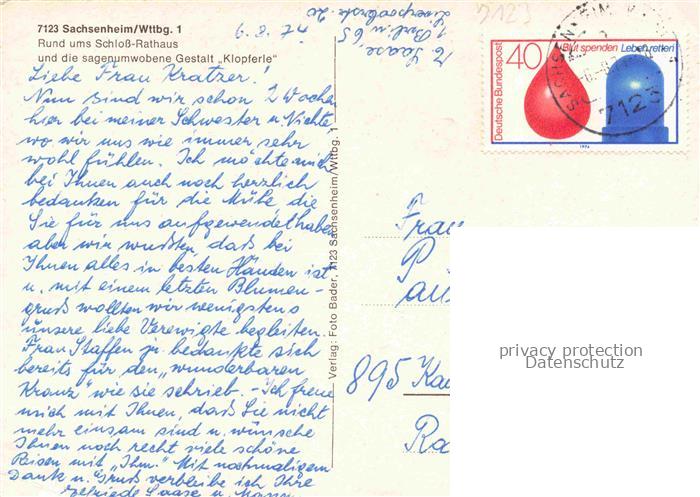 7123 Sachsenheim/Wttbg. 1
Rund ums Schloß-Rathaus
und die sagenumwobene Gestalt „Klopferle"
6.8.74
Liebe Frau Kratzer!
Nun sind wir schon 2 Wochen
hier bei meiner Schwester u. Nichte
wo wir uns wie immer sehr
wohl fühlen. Ich möchte mich
bei Ihnen auch noch herzlich
bedanken für die Mühe die
Sie für uns aufgewendet haben
aber wir wußten daß bei
Ihnen alles in besten Händen ist
u. mit einem letzten Blumen-
gruß wollten wir wenigstens
unsere liebe Verewigte begleiten.
Frau Staffen jr. bedankte sich
bereits für den „wunderbaren
Kranz" wie sie schrieb. - Ich freue
mich mit Ihnen, daß Sie nicht
mehr einsam sind u. wünsche
Ihnen noch recht viele schöne
Reisen mit „Ihm." Mit nochmaligem
Dank u. Gruß verbleibe ich Ihre
Saase u. Mann
Saase,
1 Berlin 65
7123
Verlag: Foto Bader, 7123 Sachsenheim/Wttbg. 1
Deutsche Bundespost
40
Blut spenden Leben retten
1974
SACHSENHEIM
7123
Frau
895 Kau
privacy protection
Datenschutz